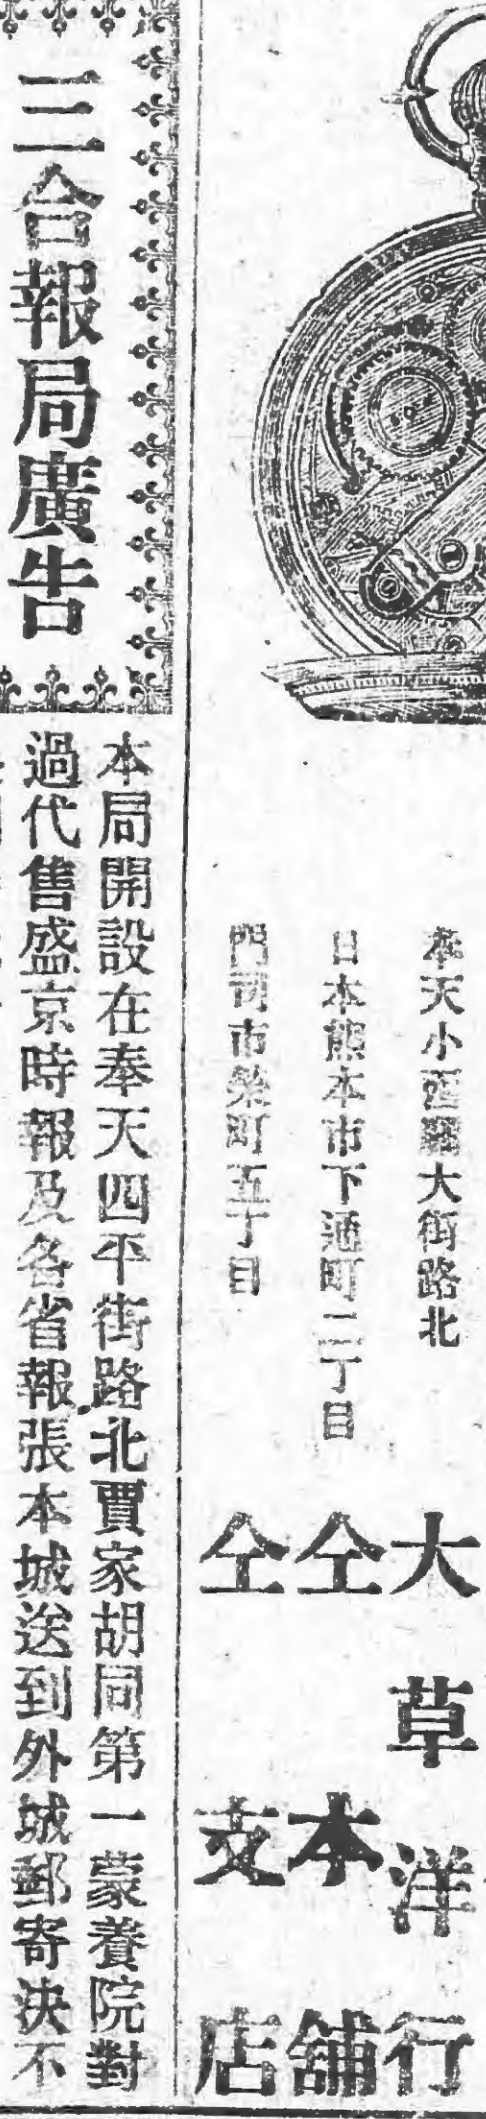 奉天小西關大街路北
大草洋行
日本熊本市下通町二丁目
仝本舖
門司市榮町五丁目
仝支店
三合報局廣告
本局開設在奉天四平街路北賈家胡同第一蒙養院對
過代售盛京時報及各省報張本城送到外城郵寄決不